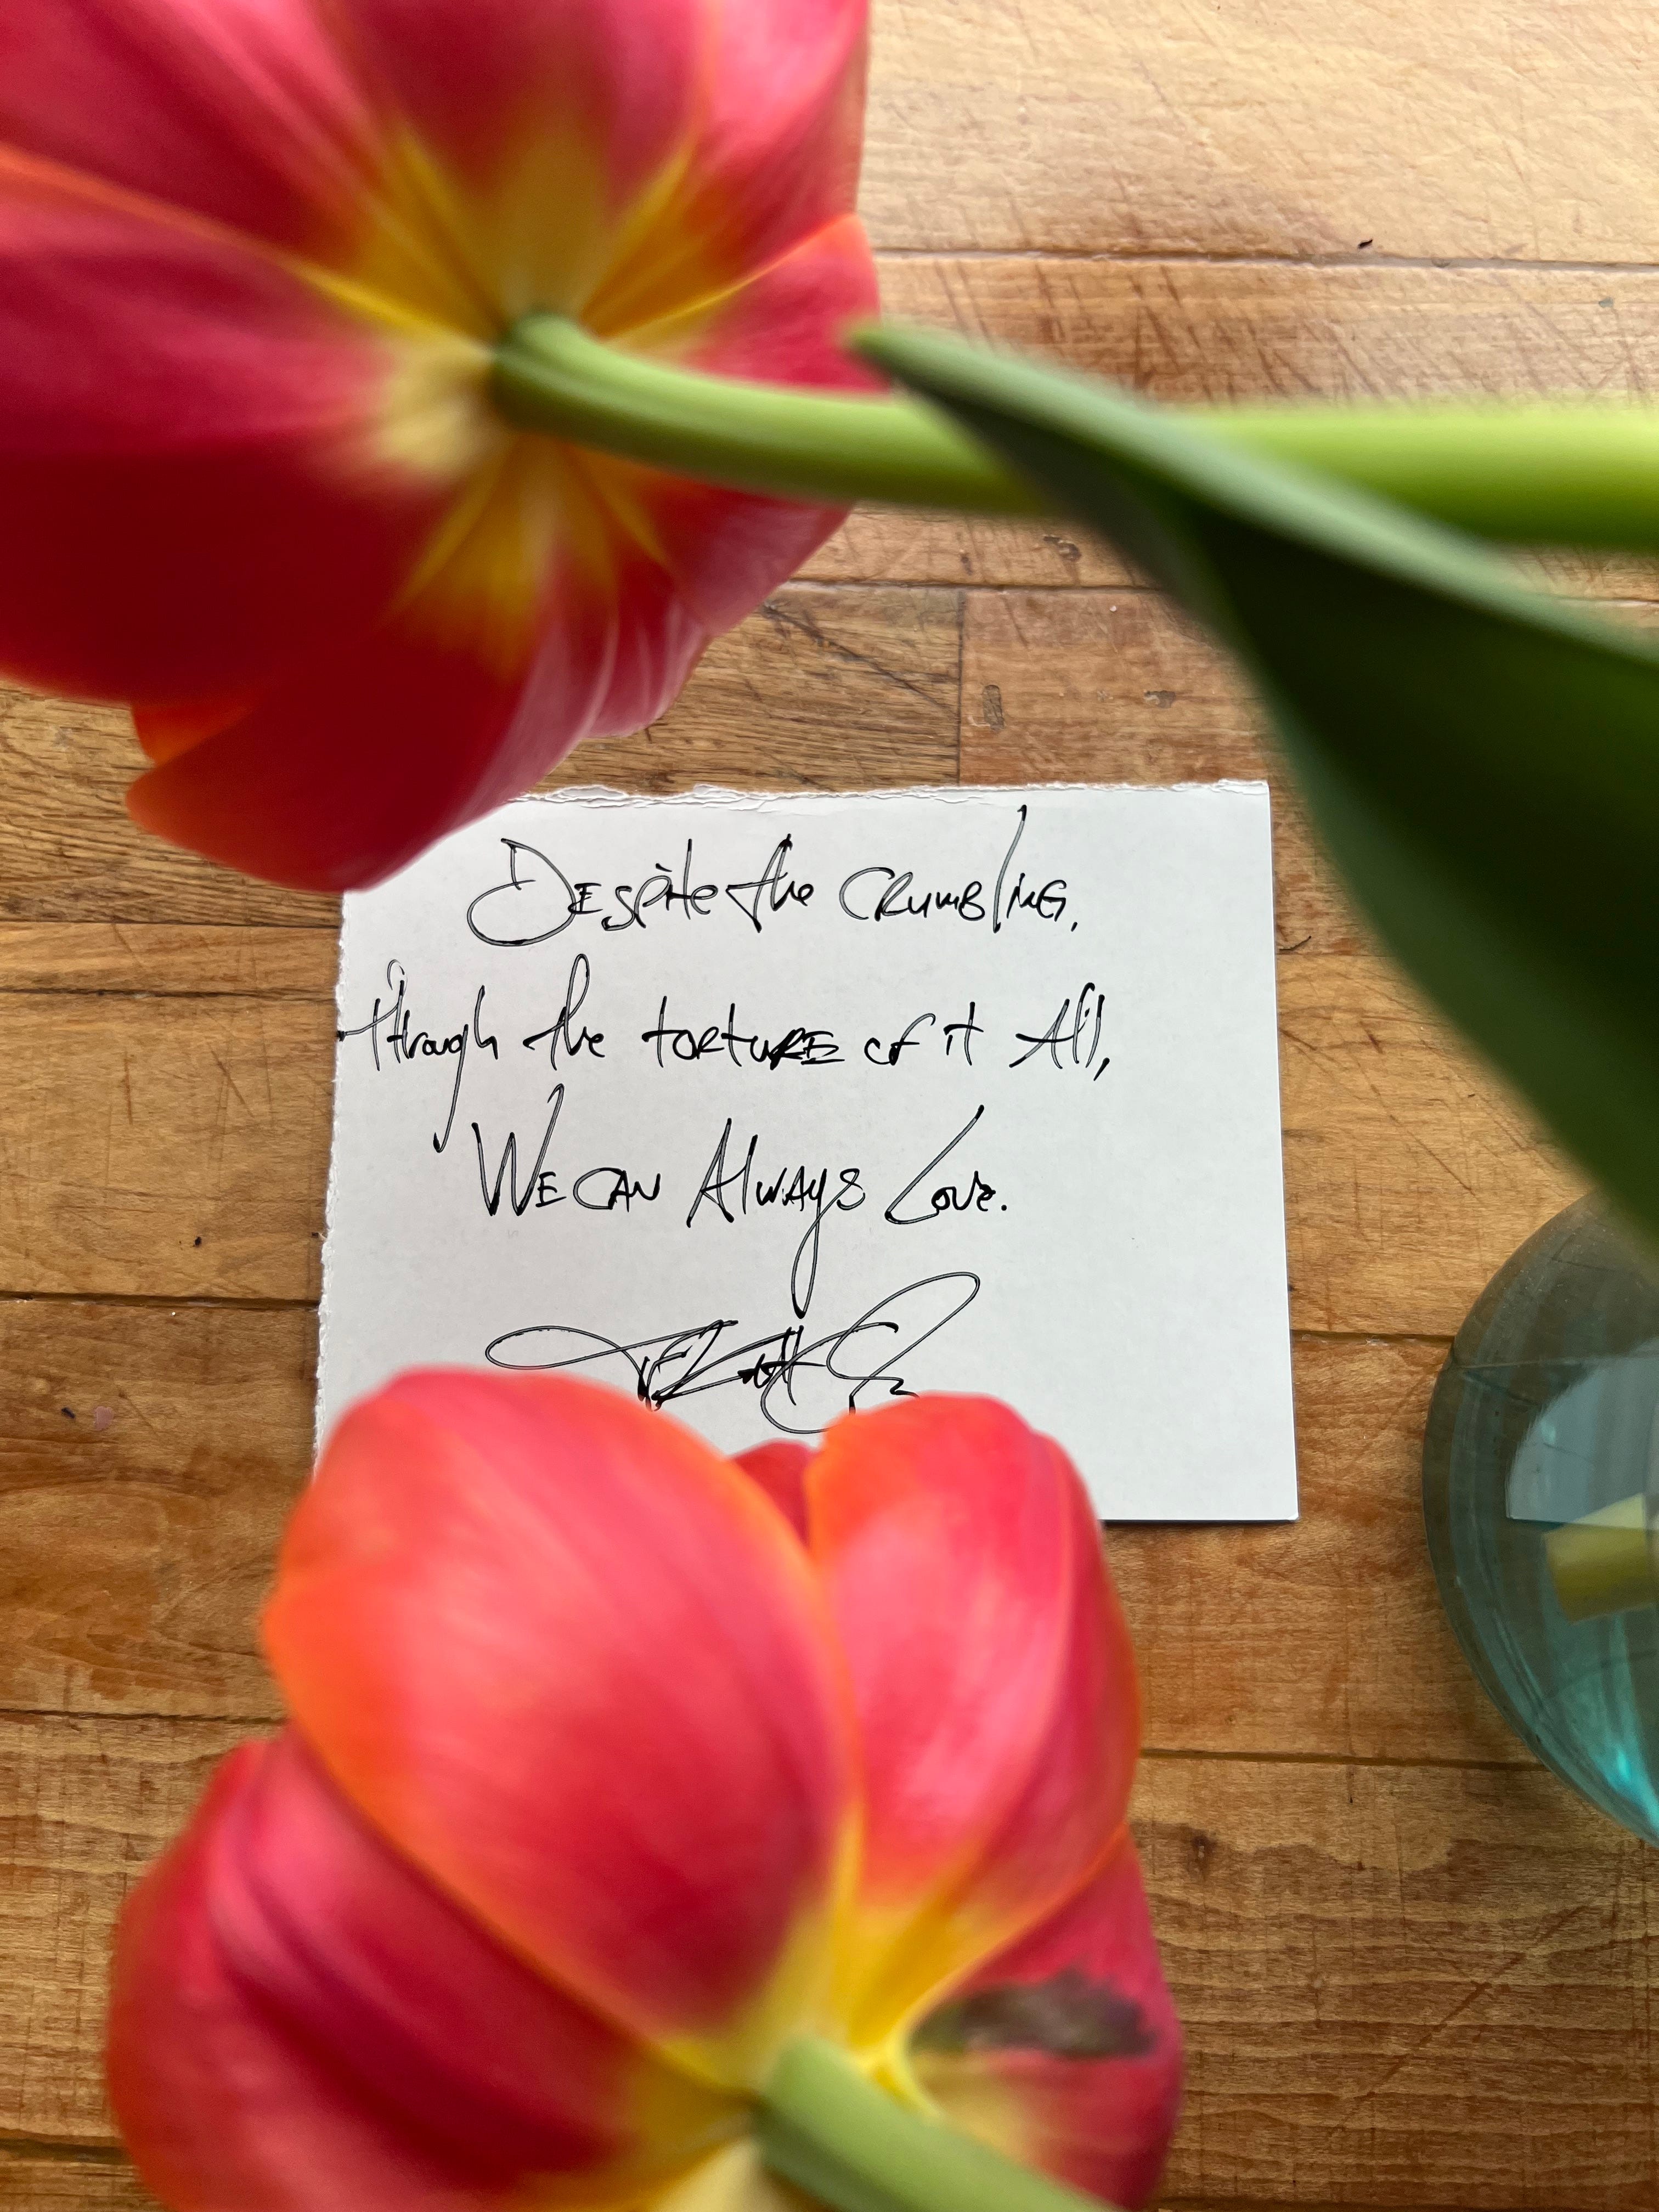 Despite the crumbling,
through the torture of it all,
We can Always Love.